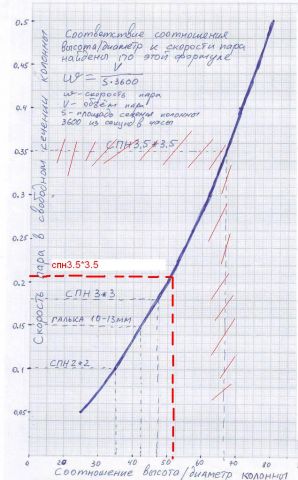 Соответствие соотношения
высота/диаметр к скорости пара
найдены по этой формуле
W = V / S·3600
W - скорость пара
V - объём пара
S - площадь сечения колонны
3600 из секунд в часы
Скорость пара в свободном сечении колонны
0.5
0.45
0.4
0.35
0.3
0.25
0.2
0.15
0.1
0,05
СПН 3,5*3,5
спн3.5*3.5
СПН 3*3
ГАЛЬКА 10-13мм
СПН 2*2
0 10 20 30 40 50 60 70 80 90
Соотношение высота/диаметр колонны